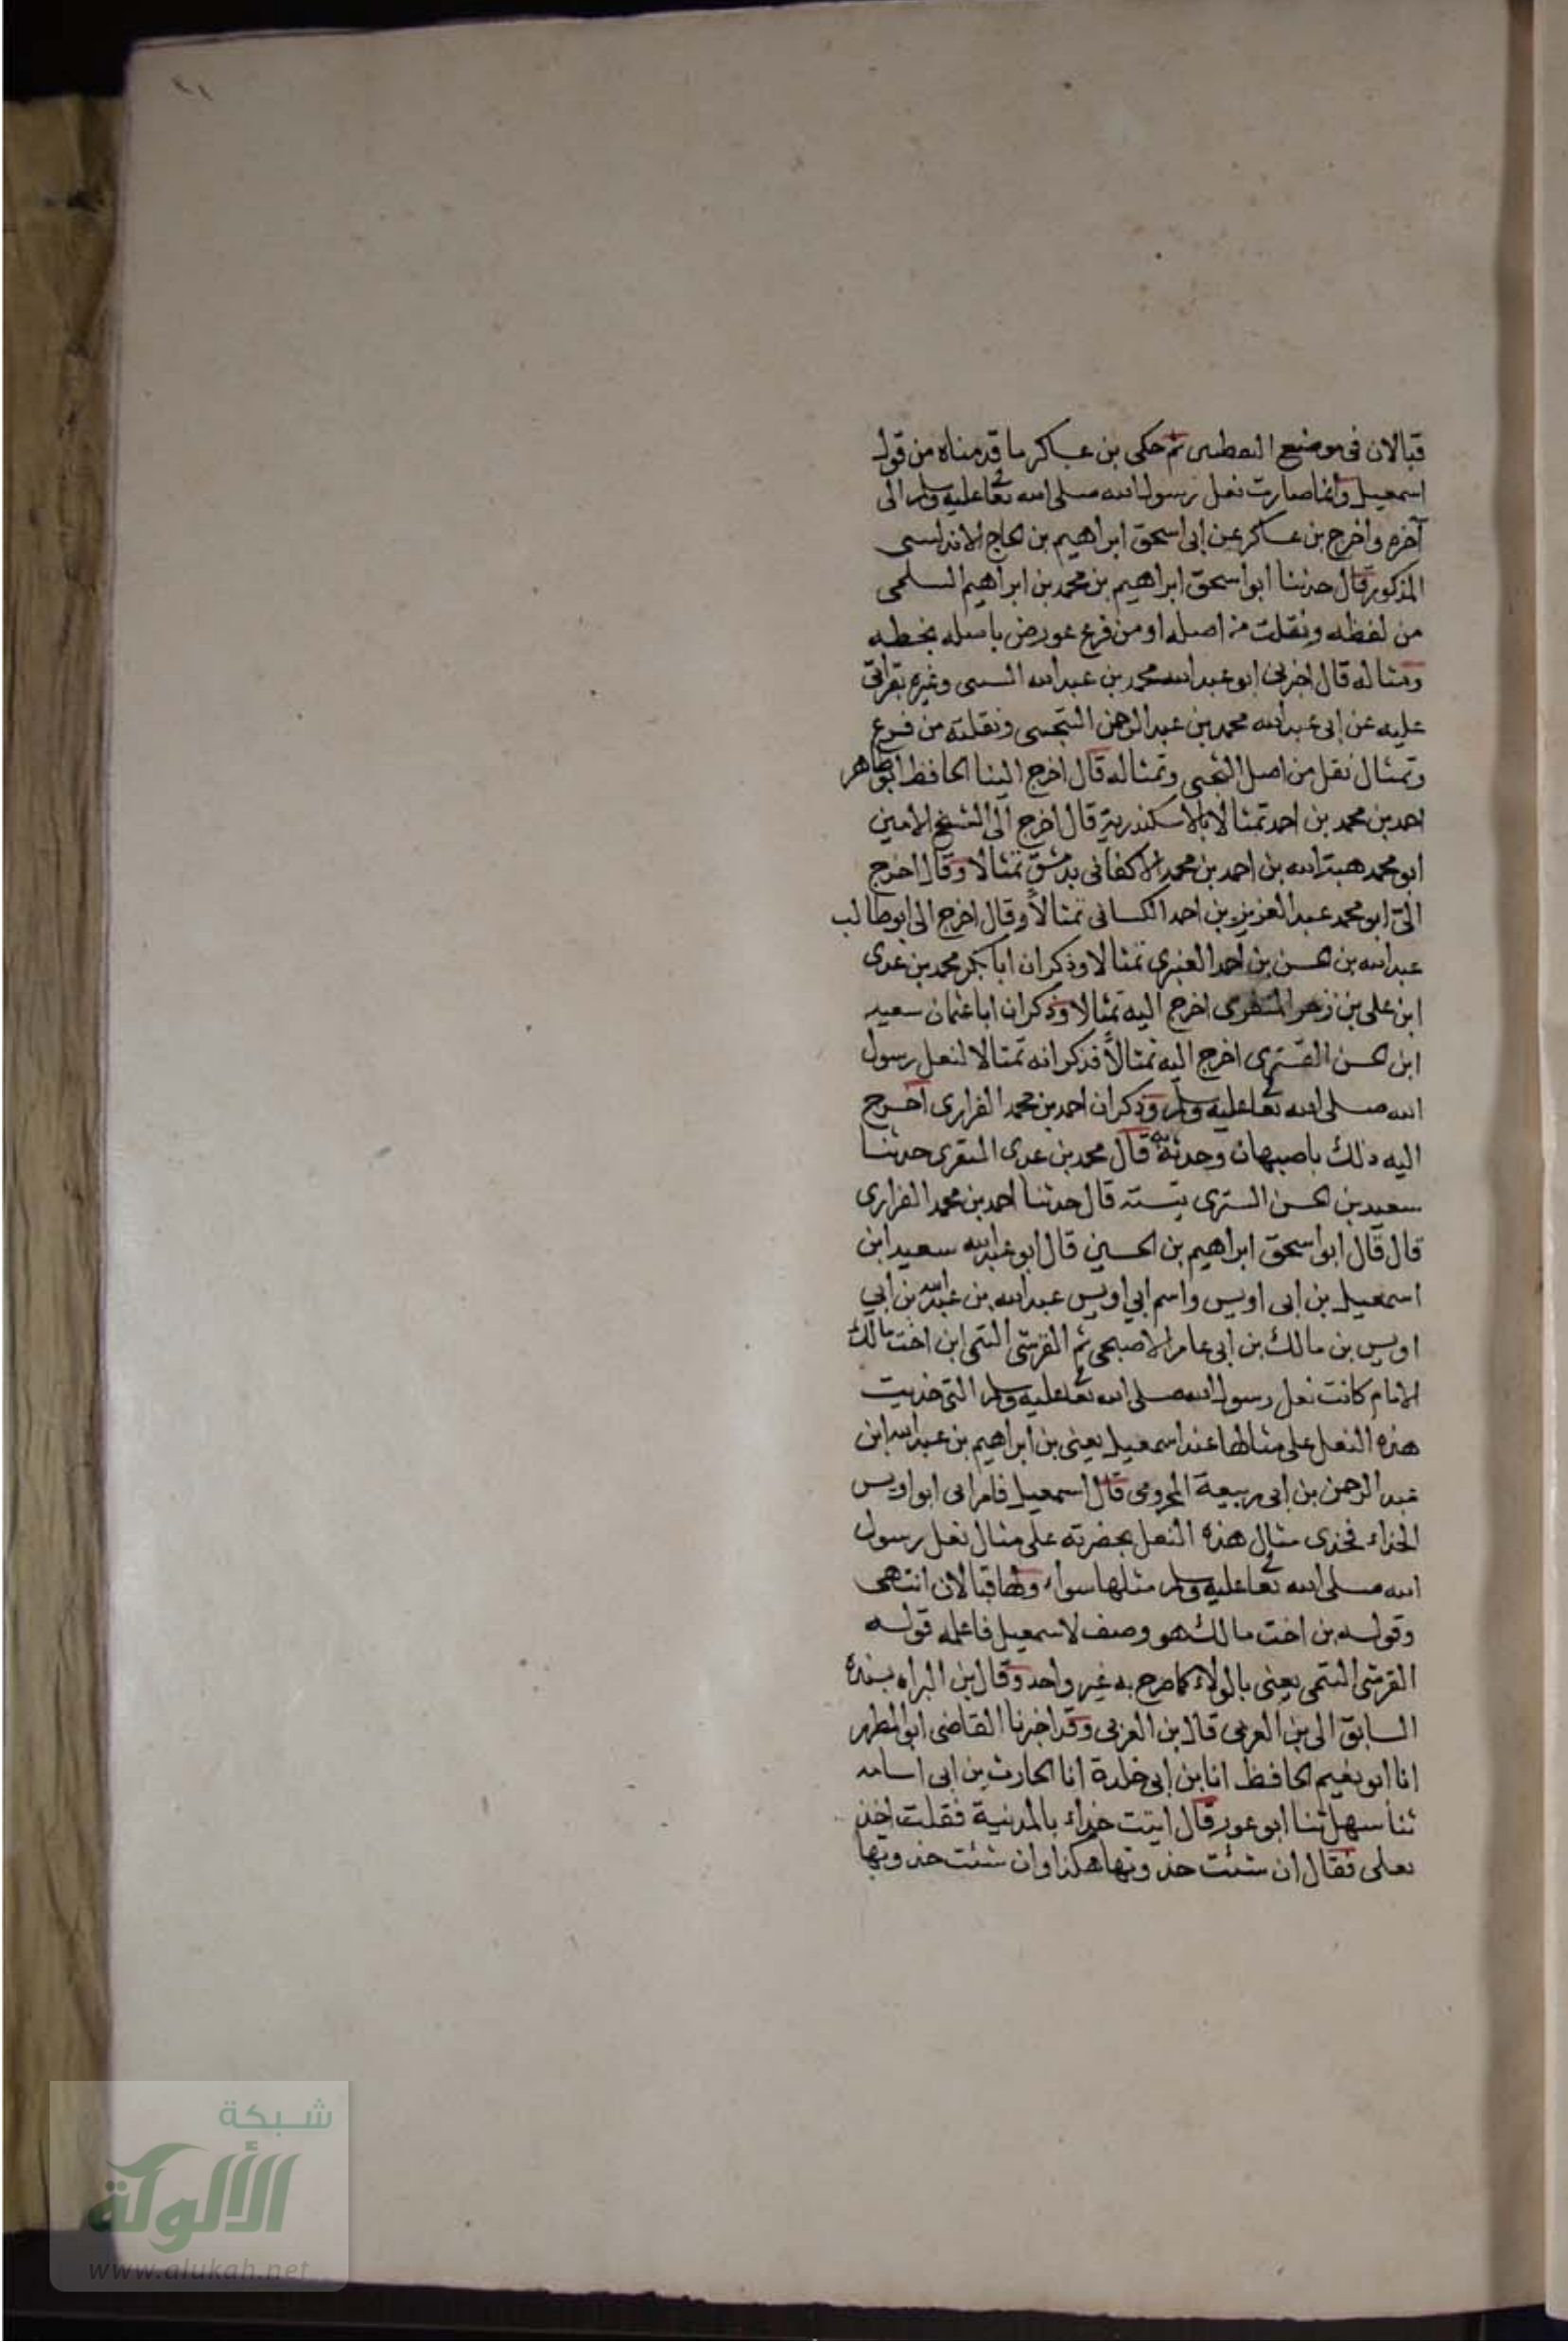 ٢١
قبالان فى موضع النعطىں ثم حكى بن عساكر ما قدمناه من قول
اسمعيل وانما صارت نعل رسول الله صلى الله تعا عليه وسلم الى
آخره واخرج بن عساكر عن ابى اسحق ابراهيم بن الحاج الاندلسى
المذكور قال حدثنا ابو اسحق ابراهيم بن محمد بن ابراهيم السلمى
من لفظه ونقلت من اصله او من فرع عورض باصله بخطه
ومثاله قال اخبرنى ابو عبد الله محمد بن عبد الله السبتى وغيره بقراتى
عليه عن ابى عبد الله محمد بن عبد الرحمن التجيبى ونقلته من فرع
وتمثال نقل من اصل التجيبى وتمثاله قال اخرج الينا الحافظ ابو طاهر
احمد بن محمد بن احمد تمثالا بالاسكندرية قال اخرج الى الشيخ الامين
ابو محمد هبة الله بن احمد بن محمد الاكفانى بدمشق تمثالا وقال اخرج
الىّ ابو محمد عبد العزيز بن احمد الكسانى تمثالاً وقال اخرج الى ابو طالب
عبد الله بن الحسن بن احمد العنبرى تمثالا وذكر ان ابا بكر محمد بن عدى
ابن على بن زحر المنقرى اخرج اليه تمثالا وذكر ان ابا عثمان سعيد
ابن الحسن التسترى اخرج اليه تمثالاً فذكر انه تمثالا لنعل رسول
الله صلى الله تعا عليه وسلم وذكر ان احمد بن محمد الفزارى اخرج
اليه ذلك باصبهان وحدثه به قال محمد بن عدى المنقرى حدثنا
سعيد بن الحسن التسترى بتستر قال حدثنا احمد بن محمد الفزارى
قال قال ابو اسحق ابراهيم بن الحسين قال ابو عبد الله سعيد ابن
اسمعيل بن ابى اويس واسم ابي اويس عبد الله بن عبد الله بن ابي
اويس بن مالك بن ابى عامر الاصبحى ثم القرشى التمى ابن اخت مالك
الامام كانت نعل رسول الله صلى الله تعا عليه وسلم التى حذيت
هذه النعل على مثالها عند اسمعيل يعنى بن ابراهيم بن عبد الله ابن
عبد الرحمن بن ابى ربيعة المخرومى قال اسمعيل فامر ابى ابو اويس
الحذاء فحذى مثال هذه النعل بحضرته على مثال نعل رسول
الله صلى الله تعا عليه وسلم مثلها سواء ولها قبالان انتهى
وقوله بن اخت مالك هو وصف لاسمعيل فاعلمه قوله
القرشى التمى يعنى بالولاء كما صرح به غير واحد وقال بن البراء بسنده
السابق الى بن العربى قال بن العربى وقد اخبرنا القاضى ابو المطهر
انا ابو نعيم الحافظ انا بن ابى خلدة انا الحارث بن ابى اسامه
ثنا سهل ثنا ابو عور قال اتيت حذاء بالمدينة فقلت احذ
نعلى فقال ان شئت حذوتها هكذا وان شئت حذوتها
شبكة
الألوكة
www.alukah.net